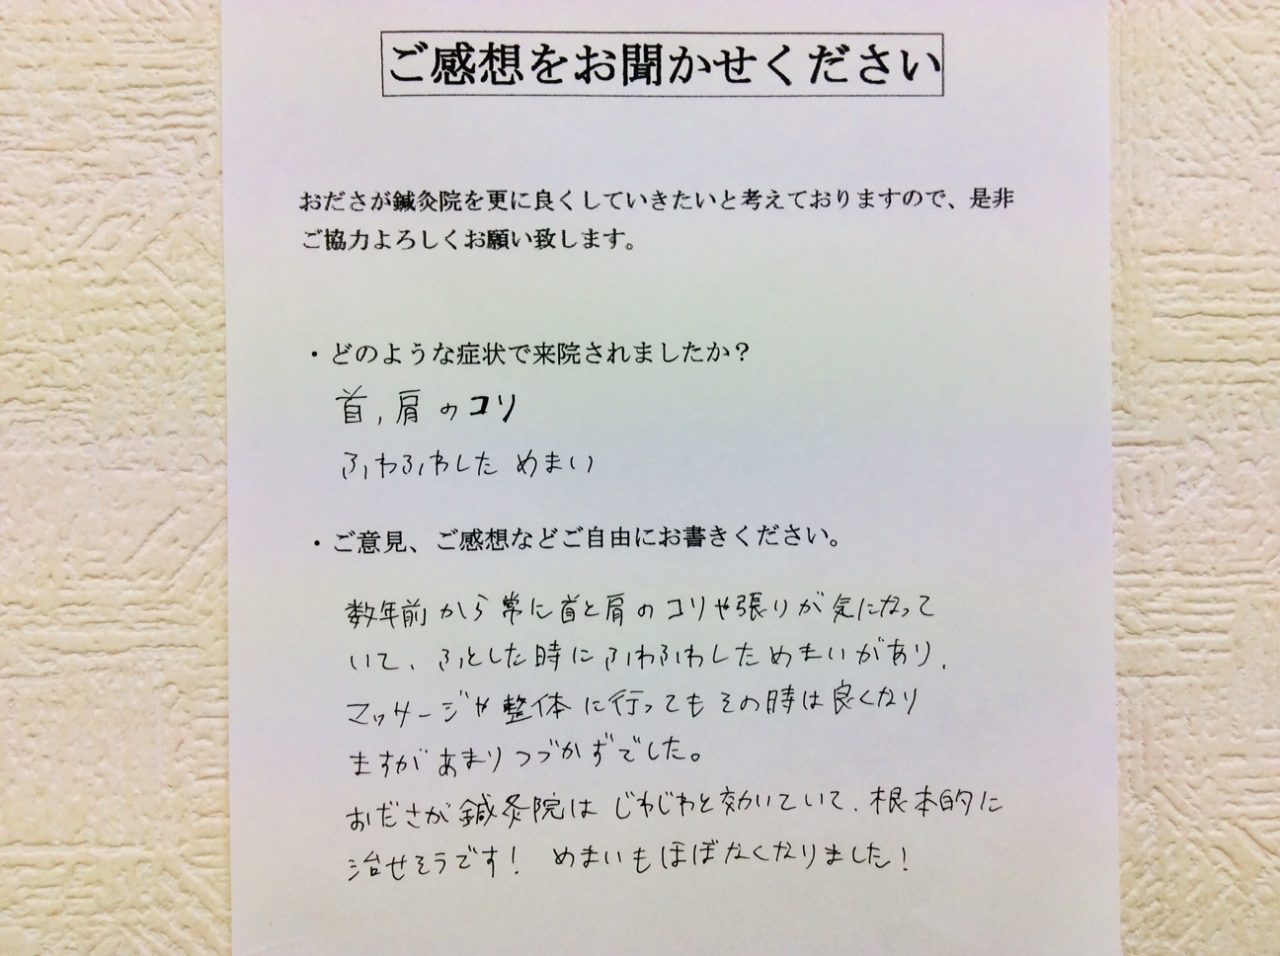 ご感想をお聞かせください
おださが鍼灸院を更に良くしていきたいと考えておりますので、是非
ご協力よろしくお願い致します。
・どのような症状で来院されましたか？
首，肩のコリ
ふわふわした めまい
・ご意見、ご感想などご自由にお書きください。
数年前から常に首と肩のコリや張りが気になって
いて、ふとした時にふわふわしためまいがあり、
マッサージや整体に行ってもその時は良くなり
ますがあまりつづかずでした。
おださが鍼灸院はじわじわと効いていて、根本的に
治せそうです！ めまいもほぼなくなりました！